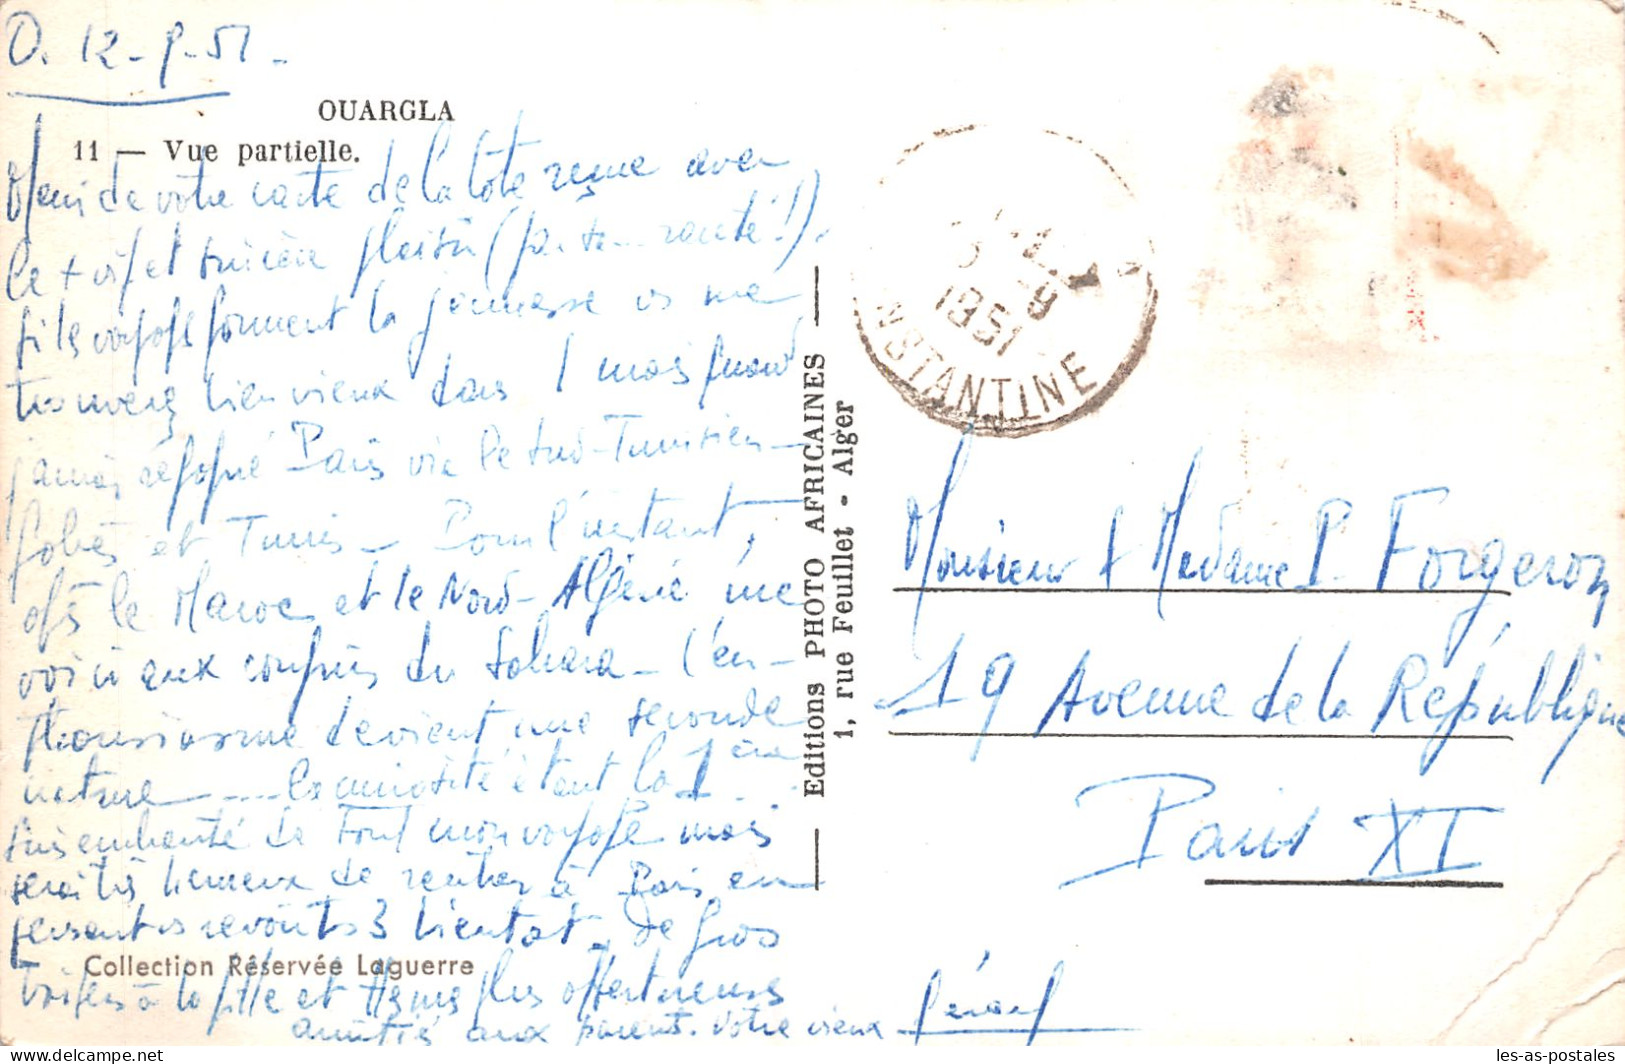 O. 12-9-51-
OUARGLA
11 — Vue partielle.
Merci de votre carte de la côte reçue avec
le + vif et sincère plaisir
si les voyages forment la jeunesse vs me
trouverez bien vieux dans 1 mois quand
j'aurai regagné Paris via le Sud-Tunisien -
Gabès et Tunis - Pour l'instant,
après le Maroc et le Nord-Algérie me
voici aux confins du Sahara - L'en-
thousiasme devient une seconde
nature ---- la curiosité étant la 1ère
Suis enchanté de tout mon voyage mais
serai très heureux de rentrer à Paris en
pensant vs revoir ts 3 bientôt. De gros
baisers à la fille et les plus affectueuses
amitiés aux parents. Votre vieux Gérard
Collection Réservée Laguerre
Editions PHOTO AFRICAINES
1, rue Feuillet - Alger
-9
1951
NSTANTINE
Monsieur & Madame P. Forgeron
19 Avenue de la République
Paris XI
les-as-postales